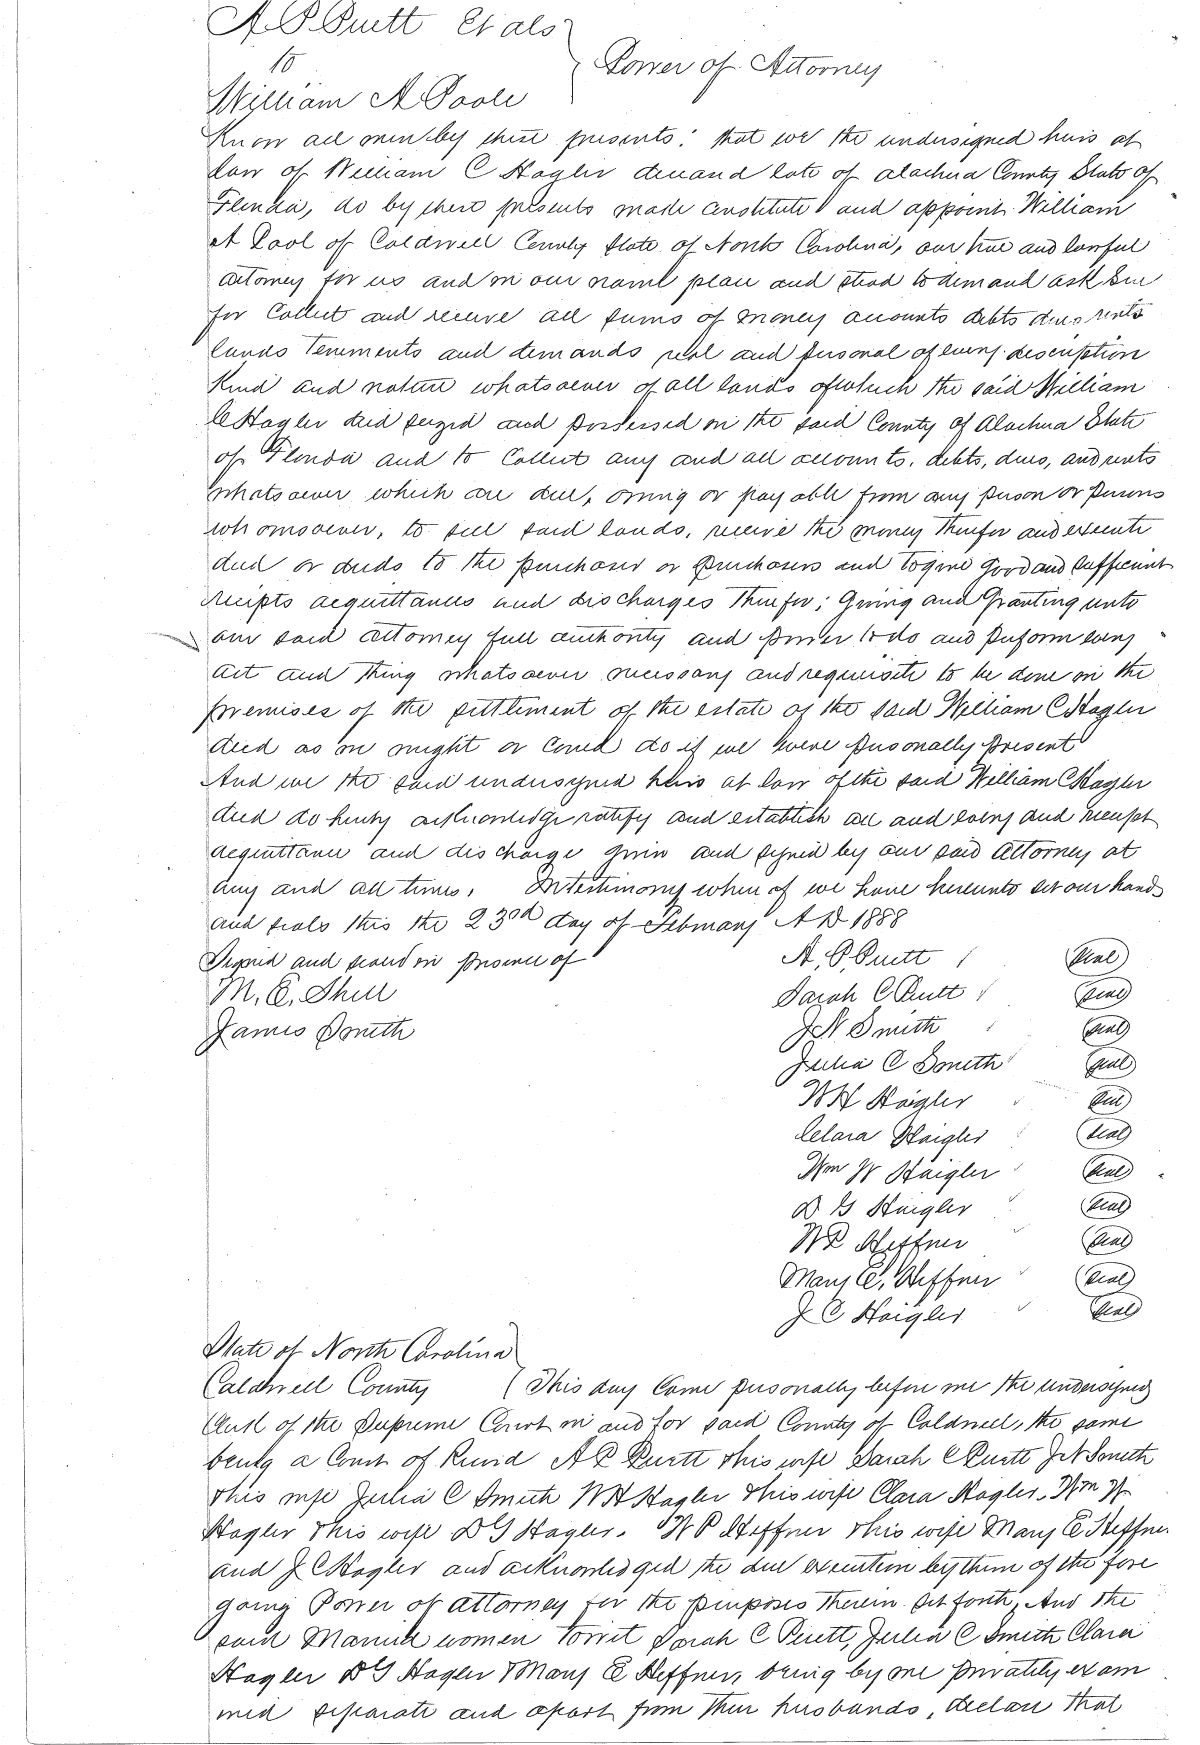 A P Puett Et als
to } Power of Attorney
William A Poole
Know all men by these presents: that we the undersigned heirs at
law of William C Hagler deceased late of Alachua County State of
Florida, do by these presents made constitute and appoint William
A Pool of Caldwell County State of North Carolina, our true and lawful
attorney for us and in our name place and stead to demand ask sue
for collect and receive all sums of money accounts debts dues rents
lands tenements and demands real and personal of every description
Kind and nature whatsoever of all lands of which the said William
C Hagler died seized and possessed in the said County of Alachua State
of Florida and to Collect any and all accounts, debts, dues, and rents
whatsoever which are due, owing or payable from any person or persons
whomsoever, to sell said lands, receive the money therefor and execute
deed or deeds to the purchaser or purchasers and to give good and sufficient
receipts acquittances and discharges therefor; Giving and Granting unto
our said attorney full authority and power to do and perform every
act and thing whatsoever necessary and requisite to be done in the
premises of the settlement of the estate of the said William C Hagler
decd as we might or could do if we were personally present
And we the said undersigned heirs at law of the said William C Hagler
decd do hereby acknowledge ratify and establish all and every and receipt
acquittance and discharge given and signed by our said Attorney at
any and all times. In testimony whereof we have hereunto set our hands
and seals this the 23rd day of February A D 1888
Signed and sealed in presence of A. P. Puett Seal
M. E. Shell Sarah C Puett Seal
James Smith J N Smith Seal
Julia C Smith Seal
W H Haigler Seal
Clara Haigler Seal
Wm W Haigler Seal
D G Haigler Seal
W P Heffner Seal
Mary E. Heffner Seal
J C Haigler Seal
State of North Carolina
Caldwell County } This day Came personally before me the undersigned
Clerk of the Supreme Court in and for said County of Caldwell, the same
being a Court of Record A P Puett & his wife Sarah C Puett J N Smith
& his wife Julia C Smith W H Hagler & his wife Clara Hagler. Wm W
Hagler & his wife D G Hagler. W P Heffner & his wife Mary E Heffner
and J C Hagler and acknowledged the due execution by them of the fore
going Power of attorney for the purposes therein set forth, And the
said Married women towit Sarah C Puett, Julia C Smith Clara
Hagler D G Hagler & Mary E Heffner, being by me privately exam
ined separate and apart from their husbands, declare that